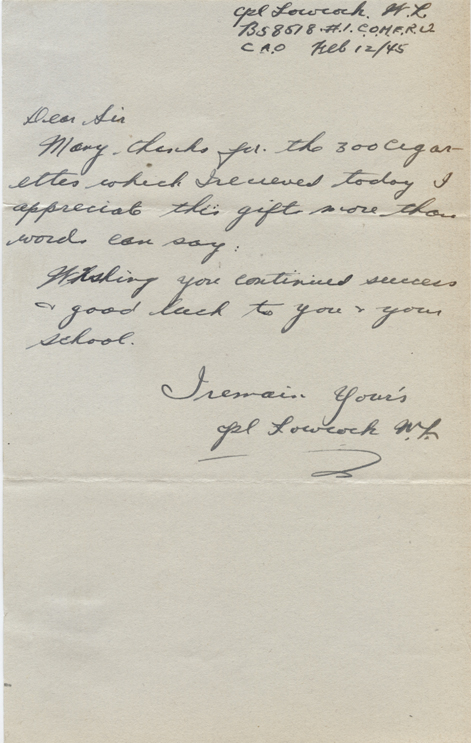 Cpl Lowcock. W.L
B58518 #.1.C.O.M.F.R.U
C.A.O Feb 12/45
Dear Sir
Many thanks for. the 300 Cigar-
ettes which I recieved today I
appreciate this gift more than
words can say:
Wishing you continued success
& good luck to you & your
school.
I remain Your's
Cpl Lowcock W.L.